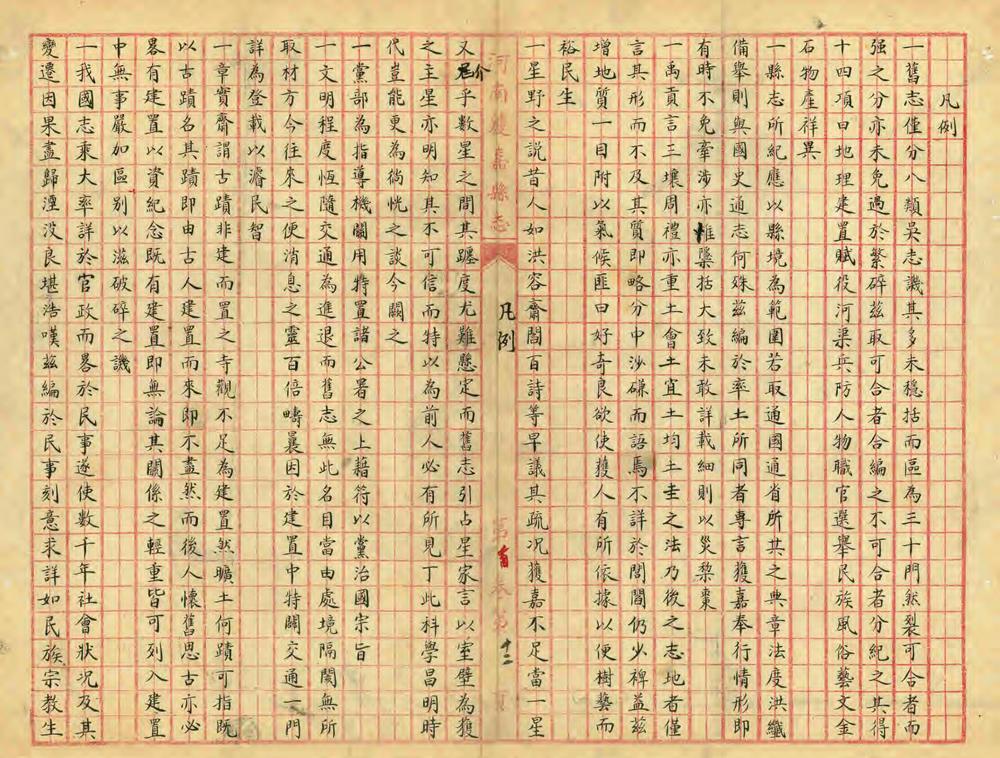 凡例
一舊志僅分八類吳志譏其多未穩括而區為三十門然裂可合者而
强之分亦未免過於繁碎兹取可合者合編之不可合者分紀之共得
十四項曰地理建置賦役河渠兵防人物職官選舉民族風俗藝文金
石物產祥異
一縣志所紀應以縣境為範圍若取通國通省所共之典章法度洪纖
備舉則與國史通志何殊兹編於率土所同者專言獲嘉奉行情形即
有時不免牽涉亦惟檃括大致未敢詳載細則以災棃棗
一禹貢言三壤周禮亦重土會土宜土均土圭之法乃後之志地者僅
言其形而不及其質即略分中沙磏而語焉不詳於閭閻仍少裨益兹
增地質一目附以氣候匪曰好奇良欲使獲人有所依據以便樹藝而
裕民生
一星野之說昔人如洪容齋閻百詩等早議其疏况獲嘉不足當一星
河南獲嘉縣志
凡例
第首卷第十二頁
又介乎數星之間其躔度尤難懸定而舊志引占星家言以室壁為獲
之主星亦明知其不可信而特以為前人必有所見丁此科學昌明時
代豈能更為徜恍之談今闕之
一黨部為指導機關用特置諸公署之上藉符以黨治國宗旨
一文明程度恆隨交通為進退而舊志無此名目當由處境隔閡無所
取材方今往來之便消息之靈百倍疇曩因於建置中特闢交通一門
詳為登載以濬民智
一章實齋謂古蹟非建而置之寺觀不足為建置然曠土何蹟可指既
以古蹟名其蹟即由古人建置而來即不盡然而後人懷舊思古亦必
畧有建置以資紀念既有建置即無論其關係之輕重皆可列入建置
中無事嚴加區别以滋破碎之譏
一我國志乘大率詳於官政而畧於民事遂使數千年社會狀况及其
變遷因果盡歸湮没良堪浩嘆兹編於民事刻意求詳如民族宗教生